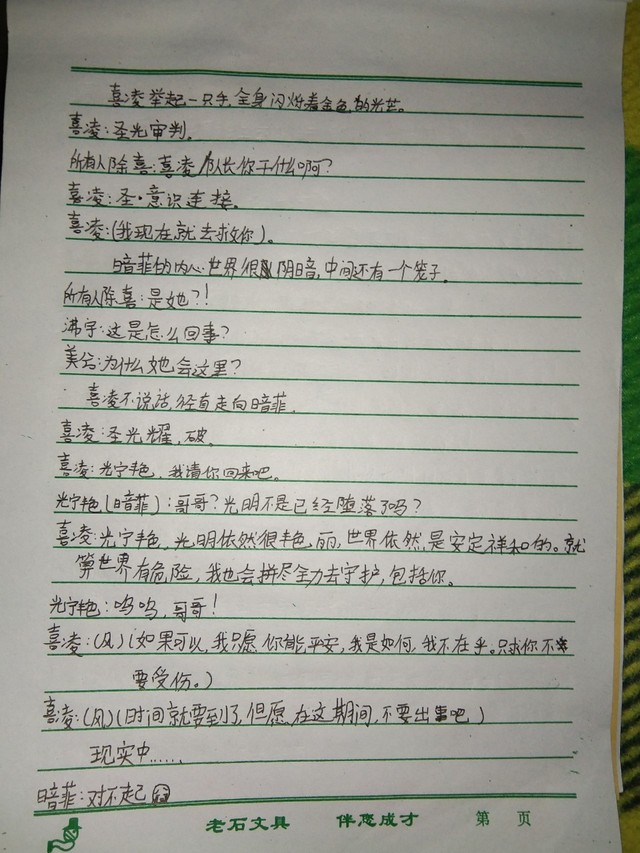 喜凌举起一只手,全身闪烁着金色的光芒。
喜凌:圣光审判。
所有人除喜:喜凌队长你干什么啊?
喜凌:圣·意识连接。
喜凌:(我现在就去救你)。
暗菲的内心世界很阴暗,中间还有一个笼子。
所有人除喜:是她?!
沸宇:这是怎么回事?
美兮:为什么她会这里?
喜凌不说话,径直走向暗菲。
喜凌:圣光耀,破。
喜凌:光宁艳,我请你回来吧。
光宁艳(暗菲):哥哥?光明不是已经堕落了吗?
喜凌:光宁艳,光明依然很艳丽,世界依然是安定祥和的。就
算世界有危险,我也会拼尽全力去守护,包括你。
光宁艳:呜呜,哥哥!
喜凌:(风)(如果可以,我只愿你能平安,我是如何,我不在乎。只求你不
要受伤。)
喜凌:(风)(时间就要到了,但愿在这期间,不要出事吧)
现实中……
暗菲:对不起
老石文具 伴您成才 第 页